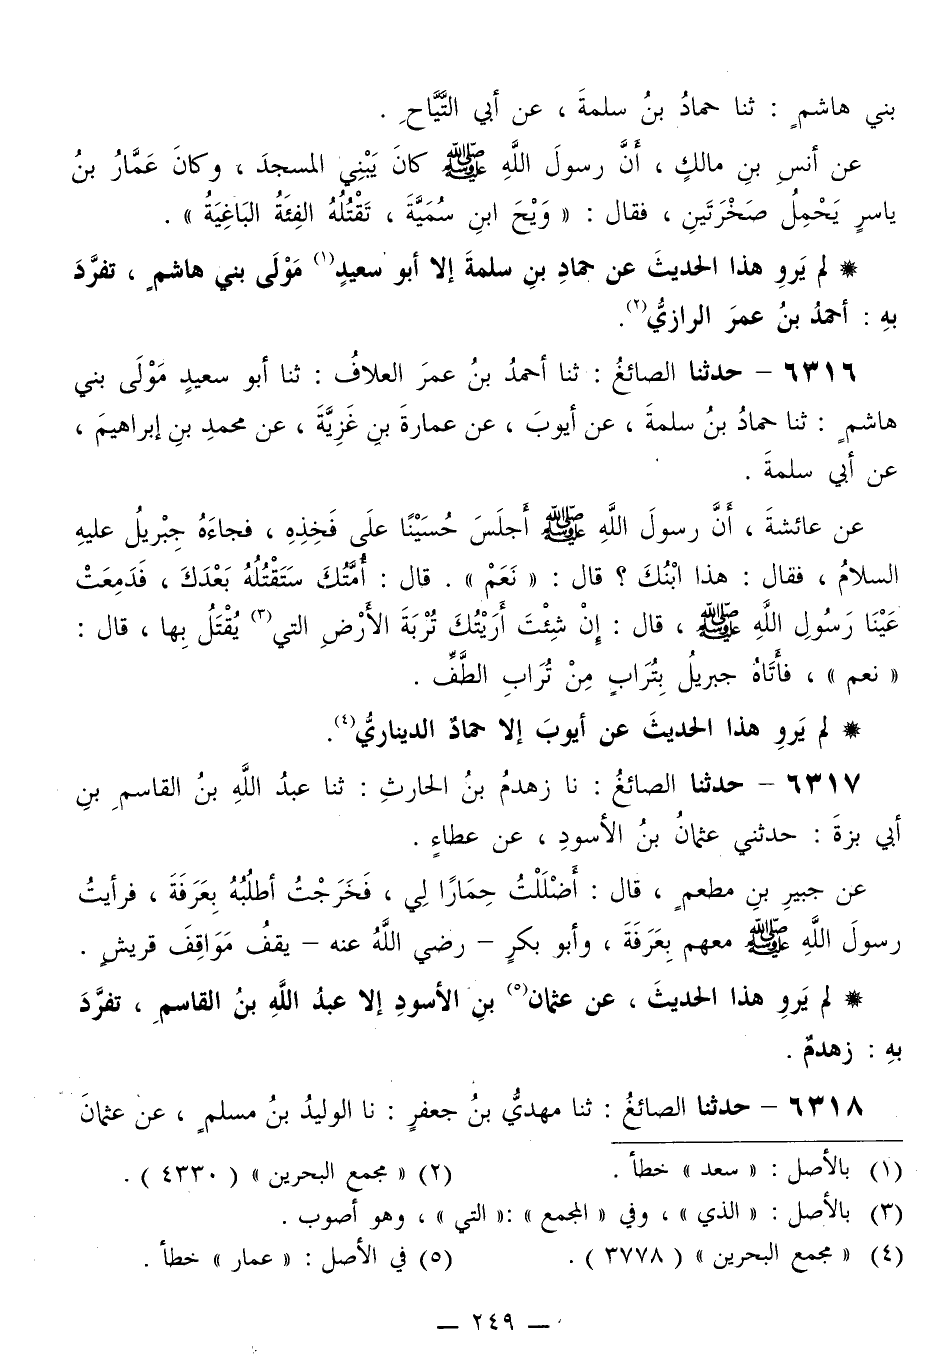 بني هاشمٍ : ثنا حمادُ بنُ سلمةَ ، عن أبي التَّيَّاحِ .
عن أنسِ بنِ مالكٍ ، أَنَّ رسولَ اللَّهِ ﷺ كانَ يَبْنِي المسجدَ ، وكانَ عَمَّارُ بنُ
ياسرٍ يَحْمِلُ صَخْرَتَينِ ، فقال : « وَيْحَ ابنِ سُمَيَّةَ ، تَقْتُلُهُ الفِئَةُ البَاغِيَةُ » .
* لم يَروِ هذا الحديثَ عن حمادِ بنِ سلمةَ إلا أبو سعيدٍ(١) مَوْلَى بني هاشمٍ ، تفرَّدَ
بهِ : أحمدُ بنُ عمرَ الرازيُّ(٢).
٦٣١٦ – حدثنا الصائغُ : ثنا أحمدُ بنُ عمرَ العلافُ : ثنا أبو سعيدٍ مَوْلَى بني
هاشمٍ : ثنا حمادُ بنُ سلمةَ ، عن أيوبَ ، عن عمارةَ بنِ غَزِيَّةَ ، عن محمدِ بنِ إبراهيمَ ،
عن أبي سلمةَ .
عن عائشةَ ، أَنَّ رسولَ اللَّهِ ﷺ أَجلَسَ حُسَيْنًا علَى فَخِذِهِ ، فجاءَهُ جِبْريلُ عليهِ
السلامُ ، فقال : هذا ابْنُكَ ؟ قال : « نَعَمْ » . قال : أُمَّتُكَ سَتَقْتُلُهُ بَعْدَكَ ، فَدَمِعَتْ
عَيْنَا رَسُولِ اللَّهِ ﷺ ، قال : إِنْ شِئْتَ أَرَيْتُكَ تُرْبَةَ الأَرْضِ التي(٣) يُقْتَلُ بِها ، قال :
« نعم » ، فأَتَاهُ جبريلُ بِتُرَابٍ مِنْ تُرَابِ الطَّفِّ .
* لم يَروِ هذا الحديثَ عن أيوبَ إلا حمادٌ الديناريُّ(٤).
٦٣١٧ – حدثنا الصائغُ : نا زهدمُ بنُ الحارثِ : ثنا عبدُ اللَّهِ بنُ القاسمِ بنِ
أبي بزةَ : حدثني عثمانُ بنُ الأسودِ ، عن عطاءٍ .
عن جبيرِ بنِ مطعمٍ ، قال : أَضْلَلْتُ حِمَارًا لِي ، فَخَرَجْتُ أطلُبُهُ بِعَرَفَةَ ، فرأيتُ
رسولَ اللَّهِ ﷺ معهم بِعَرَفَةَ ، وأبو بكرٍ – رضي اللَّهُ عنه – يقفُ مَوَاقِفَ قريشٍ .
* لم يَروِ هذا الحديثَ ، عن عثمان(٥) بنِ الأسودِ إلا عبدُ اللَّهِ بنُ القاسمِ ، تفرَّدَ
بهِ : زهدمٌ .
٦٣١٨ – حدثنا الصائغُ : ثنا مهديُّ بنُ جعفرٍ : نا الوليدُ بنُ مسلمٍ ، عن عثمانَ
(١) بالأصل : « سعد » خطأ . (٢) « مجمع البحرين » ( ٤٣٣٠ ) .
(٣) بالأصل : « الذي » ، وفي « المجمع » :« التي » ، وهو أصوب .
(٤) « مجمع البحرين » ( ٣٧٧٨ ) . (٥) في الأصل : « عمار » خطأ .
— ٢٤٩ —